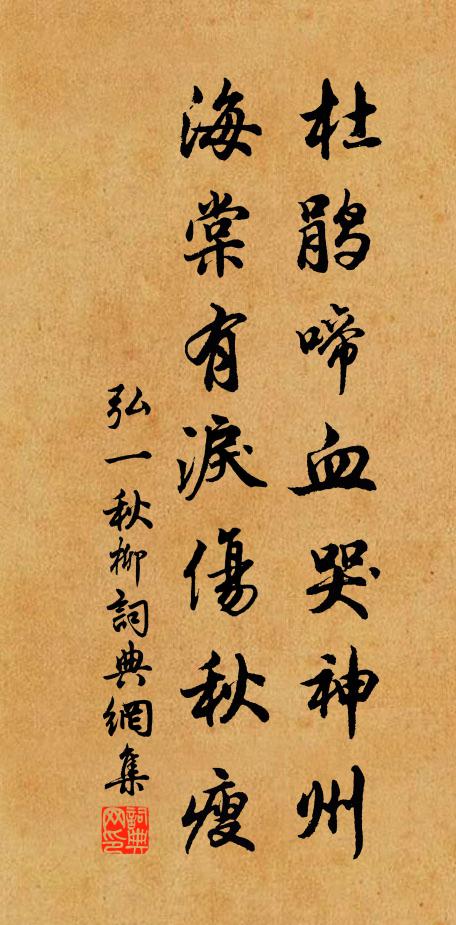 杜鵑啼血哭神州
海棠有淚傷秋瘦
弘一秋柳詞典網集
詞典网印